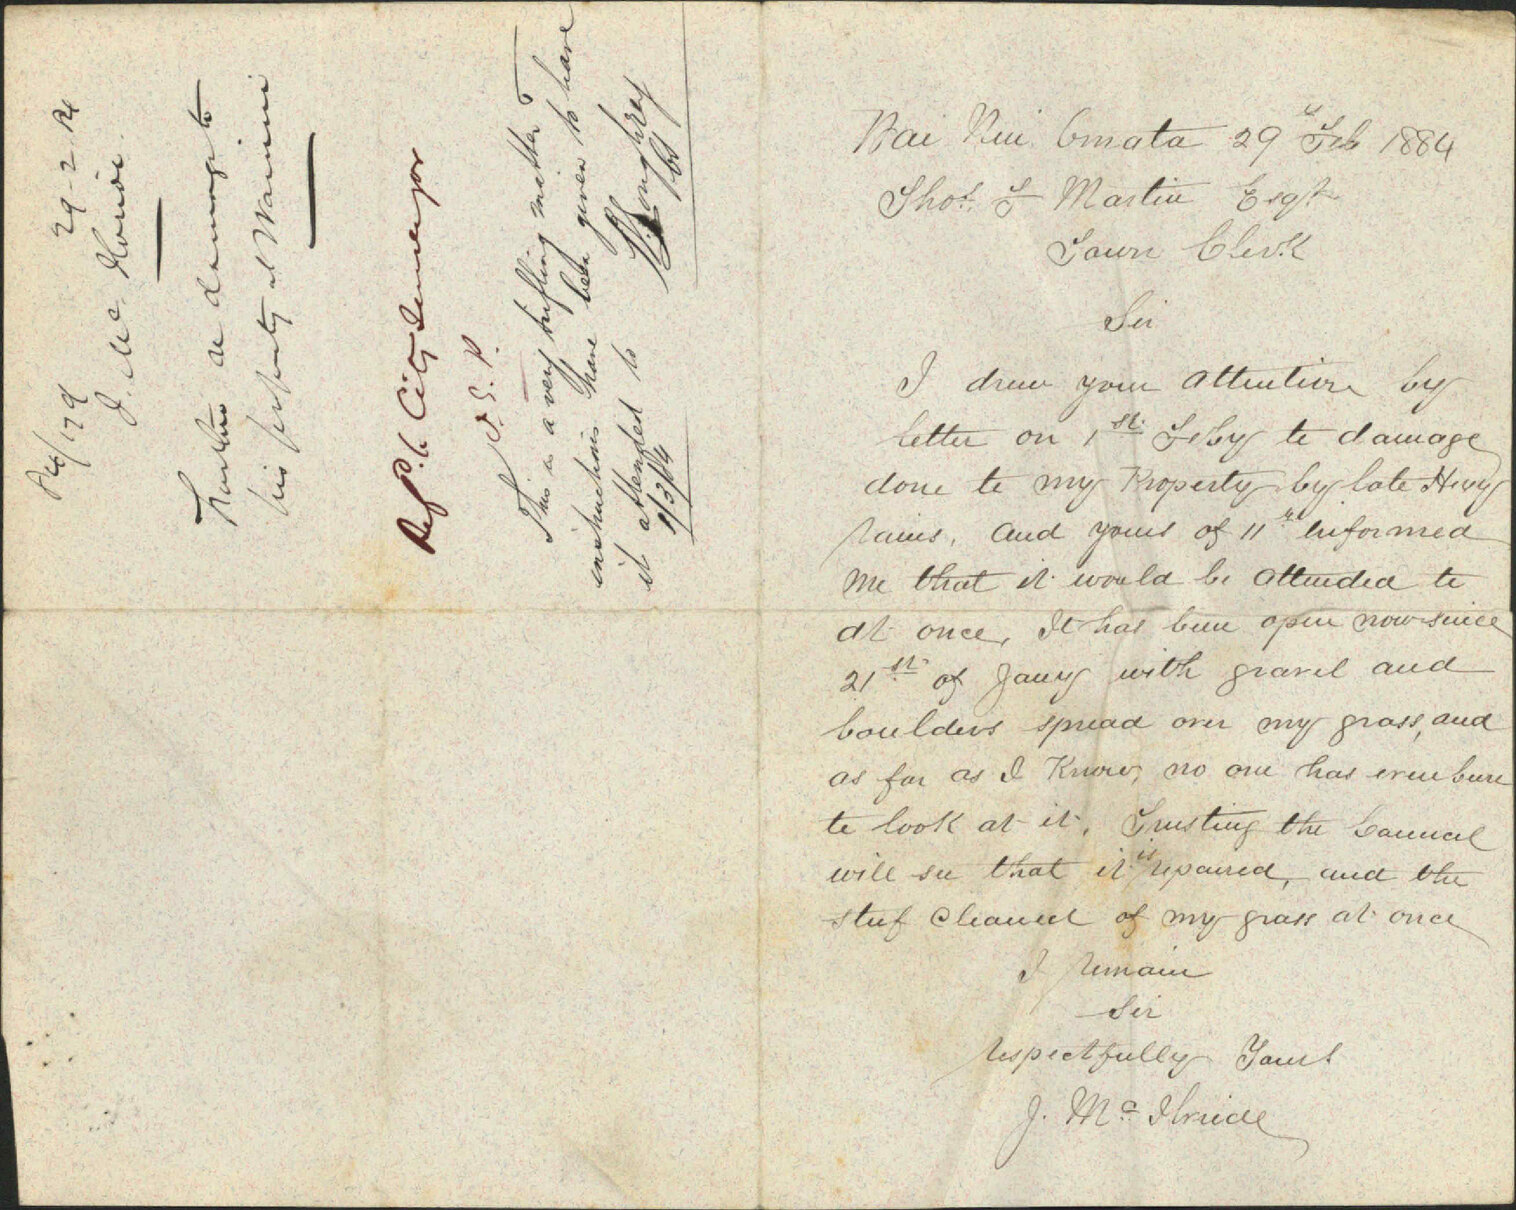 Wai Nui Omata 29th Feb 1884
Thos. F Martin Esqr
Town Clerk
Sir
I drew your attention by
letter on 1st Feby to damage
done to my Property by late Hevy
rains, and yours of 11th informed
me that it would be attended to
at once, It has been open now since
21st of Jany with gravel and
boulders spread over my grass, and
as far as I Know, no one has even been
to look at it. Trusting the Council
will see that it is repaired, and the
stuf cleaned of my grass at once
I remain
Sir
respectfully Yours
J. Mc Ilwride
29-2-84
J. Mc
Further re damage to
his property at Wainui
Ref'd. to City Surveyor
This is a very trifling matter &
instructions have been given to have
it attended to
1/3/84